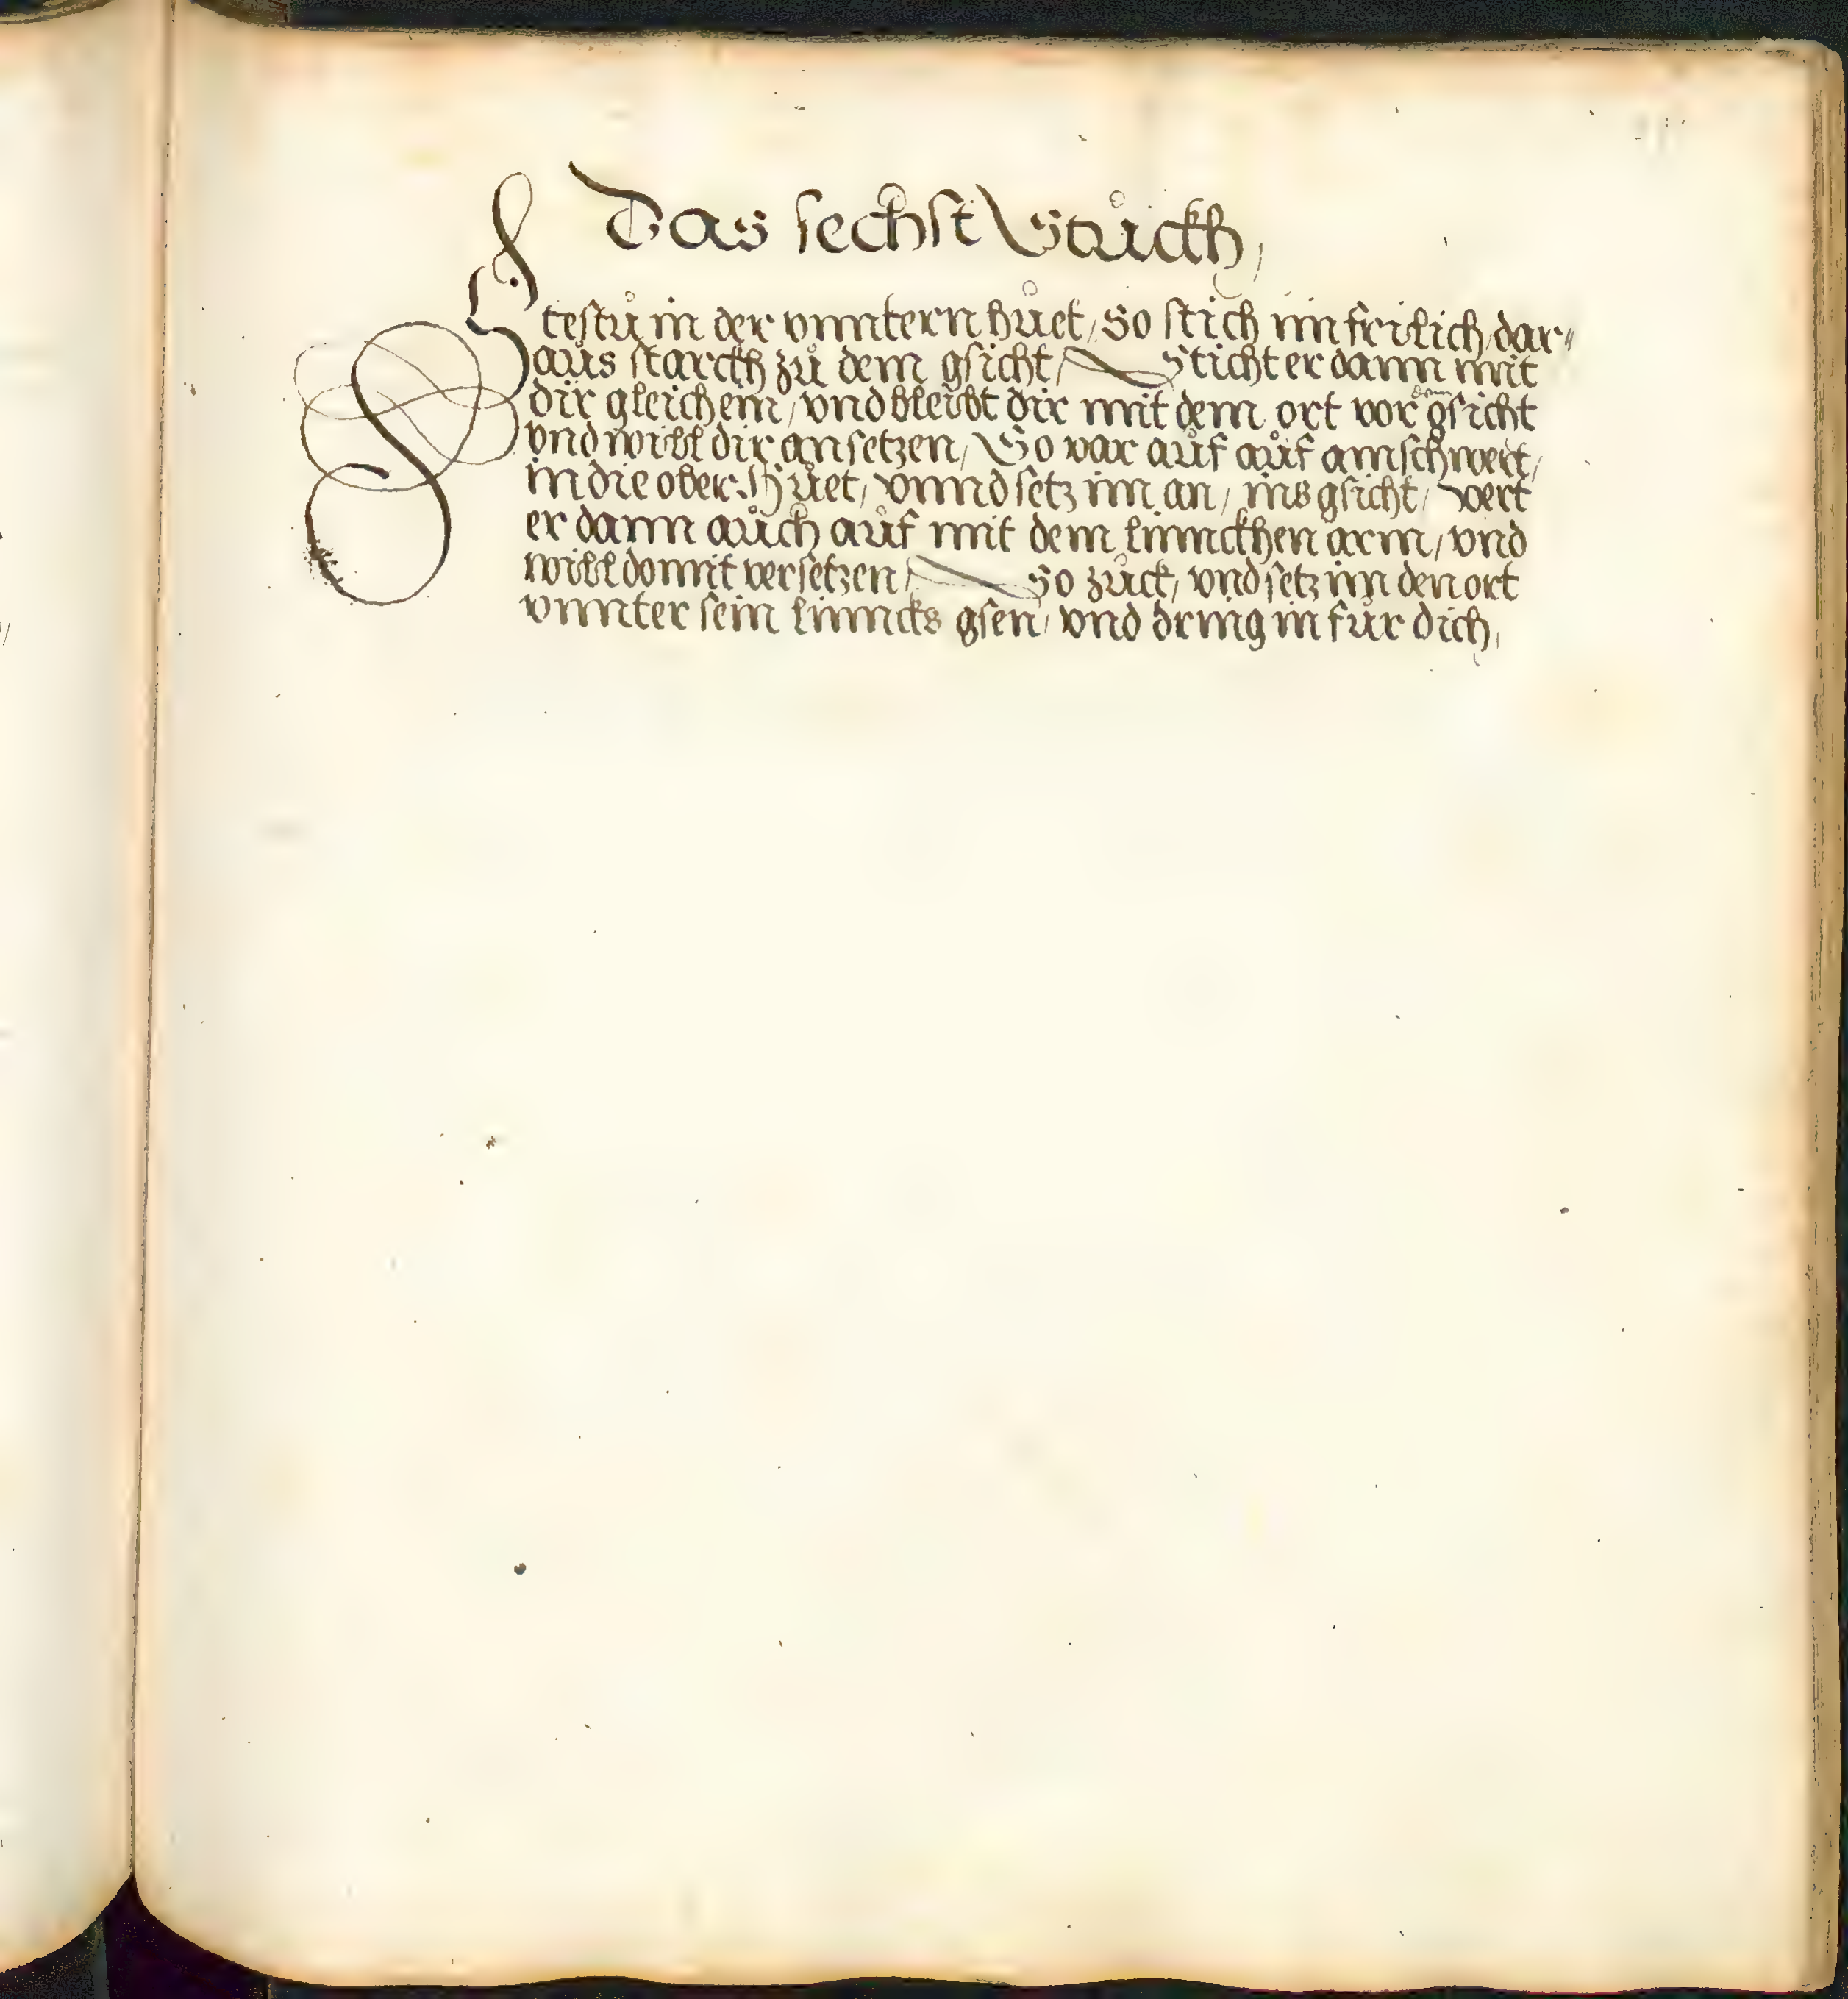 Das sechst Stuckh,
Stestu in der vnntern huet, So stich im freilich, dar„
aus starckh zu dem gsicht, Sticht er dann mit
dir gleich ein, vnd bleibt dir mit dem ort vor dem gsicht
vnd will dir ansetzen, So var auf auf am schwert,
in die ober Huet, vnnd setz im an, ins gsicht, vert
er dann auch auf mit dem linnckhen arm, vnd
will domit versetzen, So zuck, vnd setz im den ort
vnnter sein linncks gsen, vnd dring in für dich,